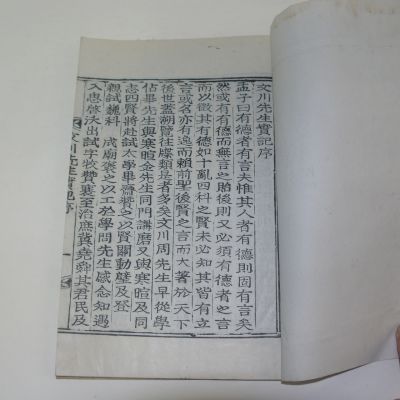 文川先生實記序
孟子曰有德者有言夫惟其人者有德則固有言矣
然或有有德而無言之貽後則又必須有德者之言
而以徵其有德如十亂四科之賢未必知其皆有立
言或名亦有逸而賴前聖後賢之言而大著於天下
後世蓋朔覽往牒類是者多矣文川周先生早從學
佔畢先生與寒暄金先生同門講磨又與寒暄及同
志四賢將赴試太學畢齋贊之以賢關動壁及登
親試巍科 成廟褒之以工於學問先生感念知遇
入思啓沃出試字牧贊襄至治庶冀堯舜其君民及
文川先生實記序
一